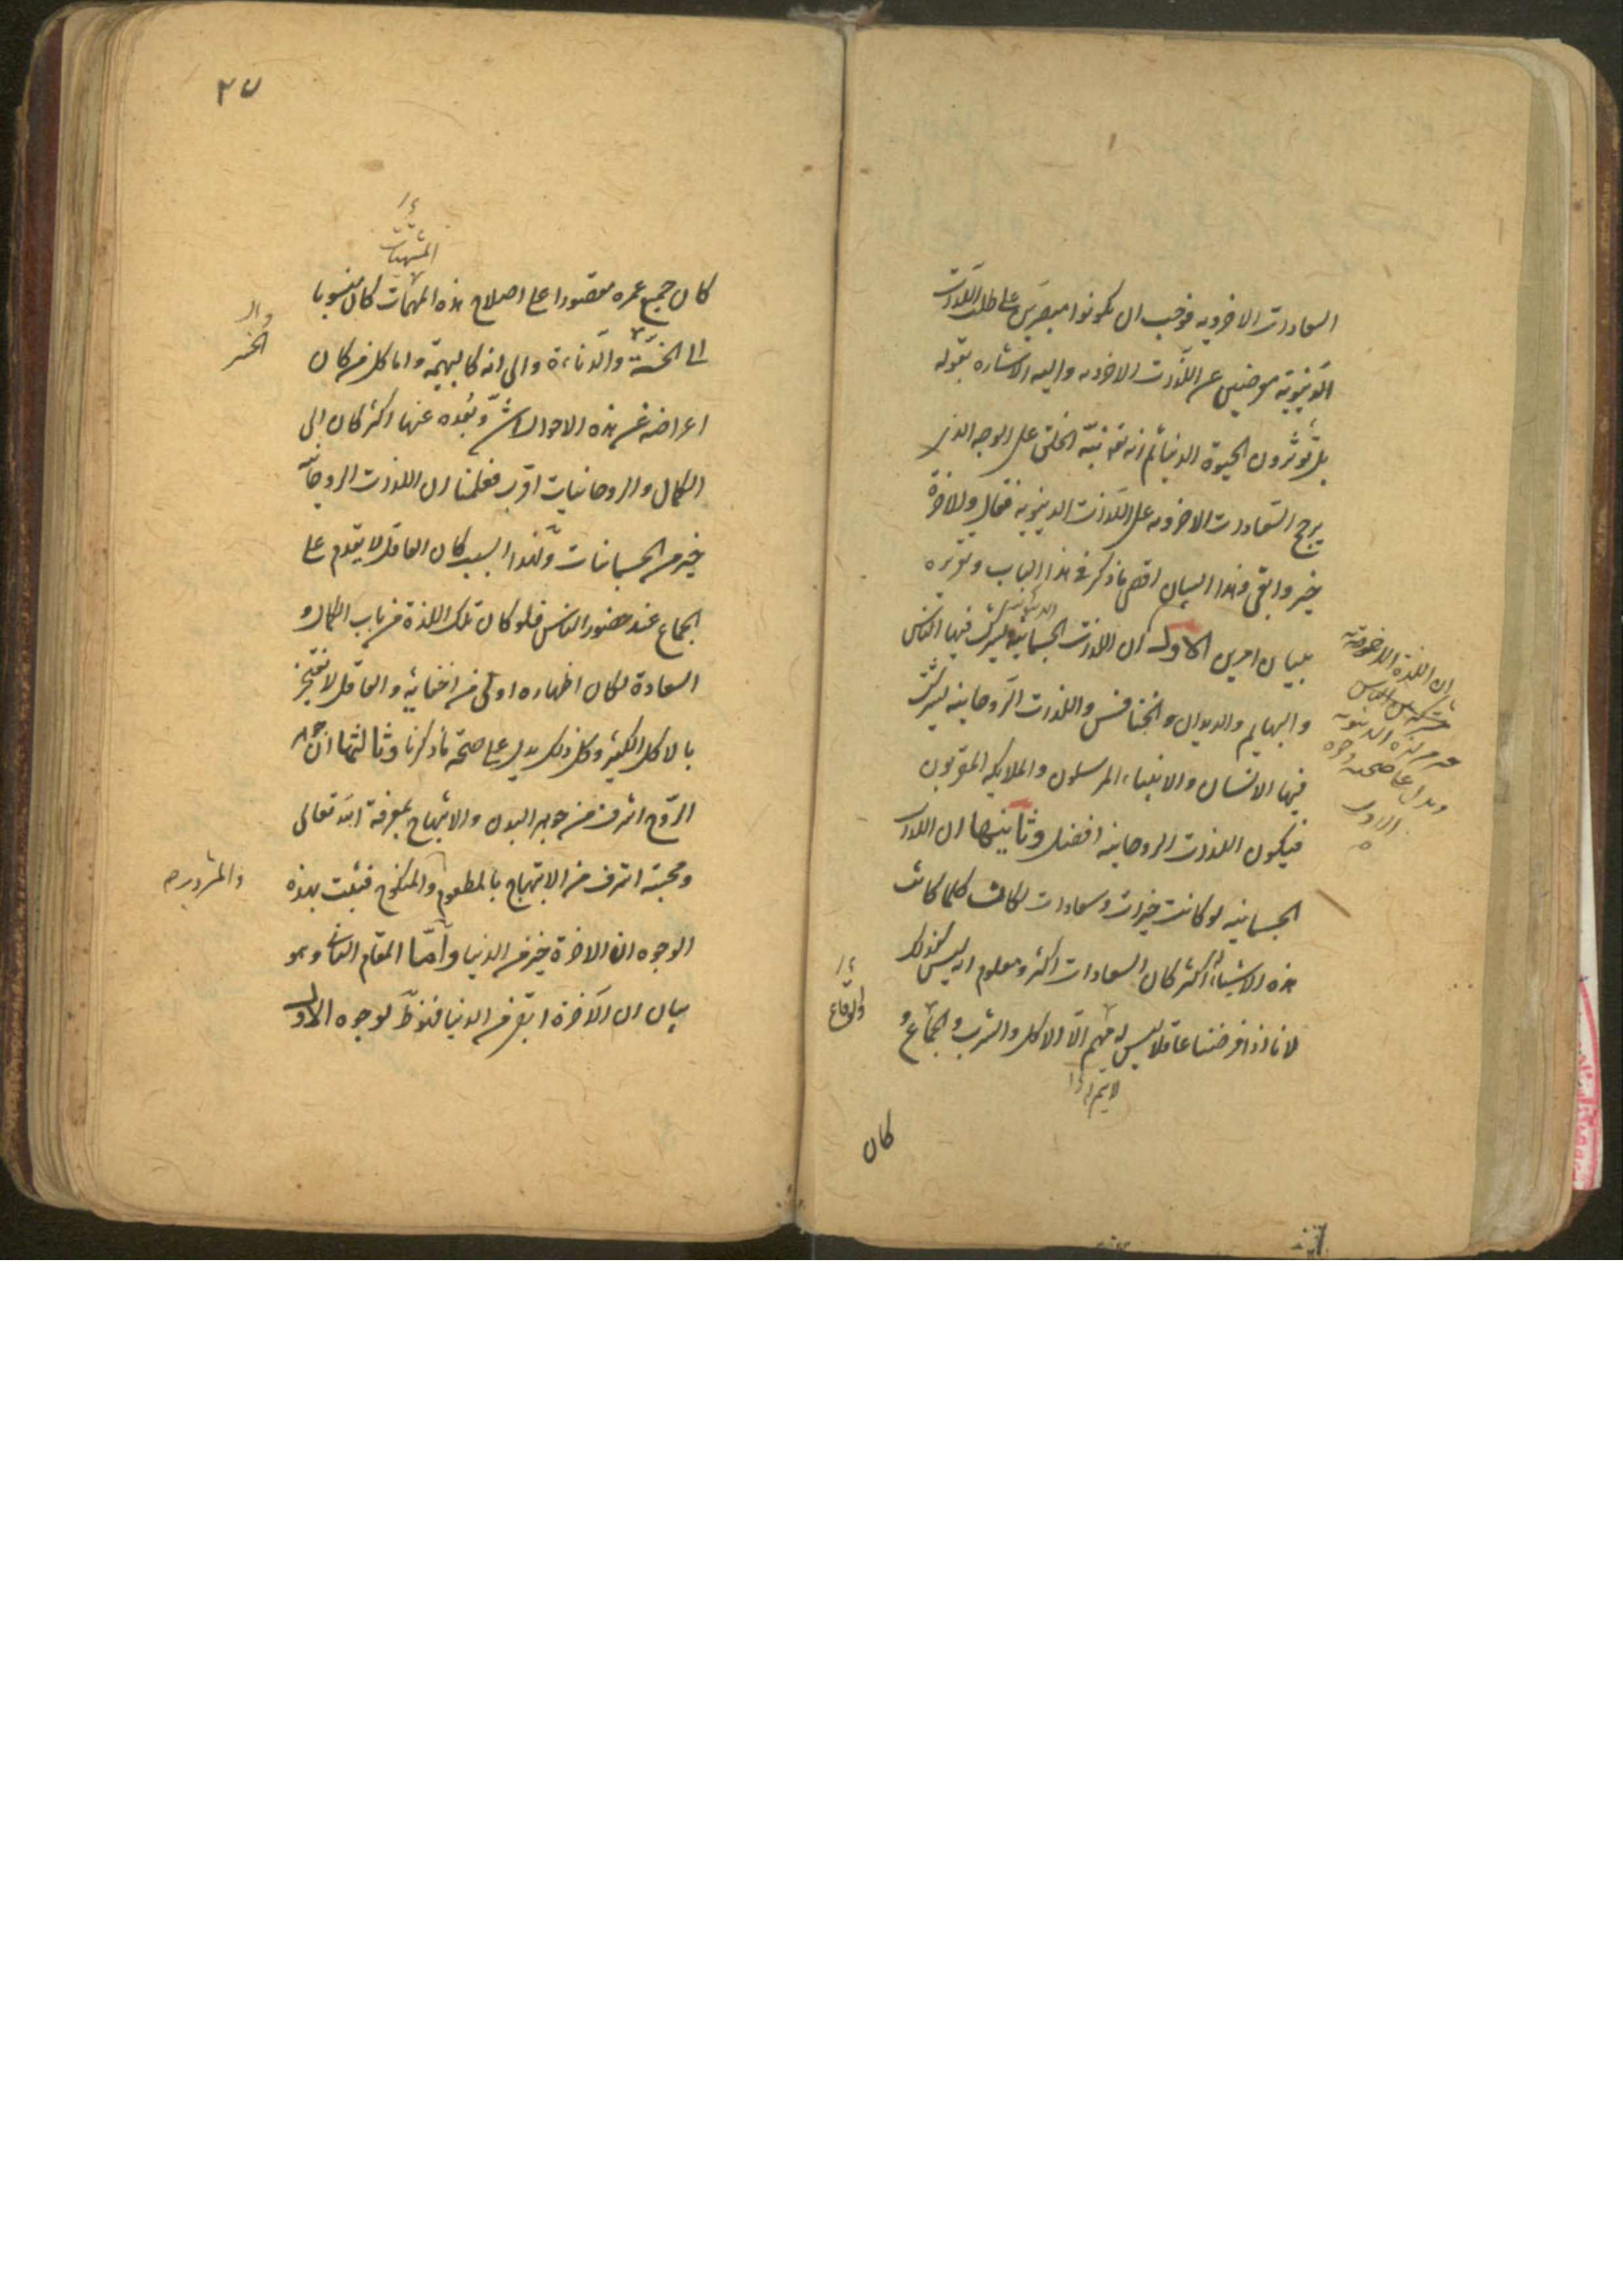 السعادات الاخرويه فوجب ان يكونوا مصرين على طلب اللذات
الدنيوية معرضين عن اللذات الاخرويه واليه الاشاره بقوله
بل تؤثرون الحيوة الدنيا ثم انه تعالى نبّه الخلق على الوجه الذى
يرجح السّعادات الاخرويه على اللذات الدنيوية فقال والاخرة
خير وابقى وهذا البيان اقصى ما ذكر فى هذا الباب وتقريره
ببيان امرين الاول ان اللذات الجسمانية يشترك فيها الناس
الدنيويه
ان اللذة الاخرويّة
خير من لذه الدنيويه
ويدل على صحته وجوه
الاول
والبهايم والديدان والخنافس واللذات الرّوحانيه يشترك
فيها الانسان والانبياء المرسلون والملايكه المقربون
فيكون اللذات الروحانيه افضل وثانيها ان اللذات
الجسمانيه لو كانت خيرات وسعادات لكانت كلما كانت
هذه الاشياء اكثر كان السعادات اكثر ومعلوم انه ليس كذلك
لانا اذا فرضنا عاقلا ليس له مهم الّا الاكل والشرب والجماع و
والوقاع
كان
٢٧
المشتهيات
كان جميع عمره مقصورا على اصلاح هذه المهمات كان منسوبا
الى الخسّة والدّناءة والى انه كالبهيمة واما كل من كان
اعراضه عن هذه الاحوال اشدّ وبُعده عنها اكثر كان الى
الكمال والروحانيات اقرب فعلمنا ان اللذات الروحانيّة
خير من الجسمانيات ولهذا السبب كان العاقل لا يقدم على
الجماع عند حضور الناس فلو كان تلك اللذة من باب الكمال و
السعادة لكان اظهاره اولى من اخفائه والعاقل لا يفتخر
بالاكل الكثير وكل ذلك يدل على صحة ما ذكرنا وثالثها ان جوهر
الرّوح اشرف من جوهر البدن والابتهاج بمعرفة الله تعالى
ومحبته اشرف من الابتهاج بالمطعوم والمنكوح فثبت بهذه
والمشروب صح
الوجوه ان الاخرة خير من الدنيا وامّا المقام الثانى وهو
بيان ان الآخرة ابقى من الدنيا فنذكر لوجوه الاول